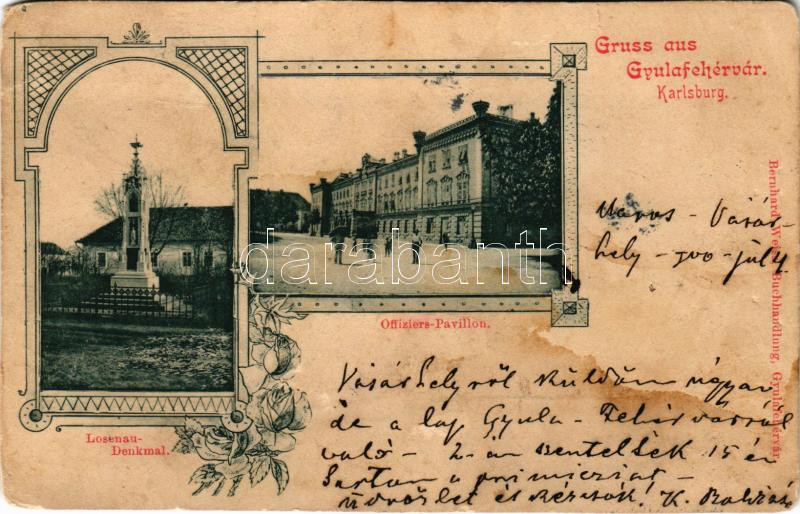 Gruss aus
Gyulafehérvár.
Karlsburg.
Maros - Vásár-
hely - 900 - july
darabanth
Offiziers-Pavillon.
Losenau-
Denkmal.
Vásárhelyről küldöm ugyan
de a lap Gyula - Fehérvárról
való - 2-án szenteltek 15-én
tartom a primicziát -
üdvözlet és kézcsók! K.
Bernhard Buchhandlung, Gyulafehérvár